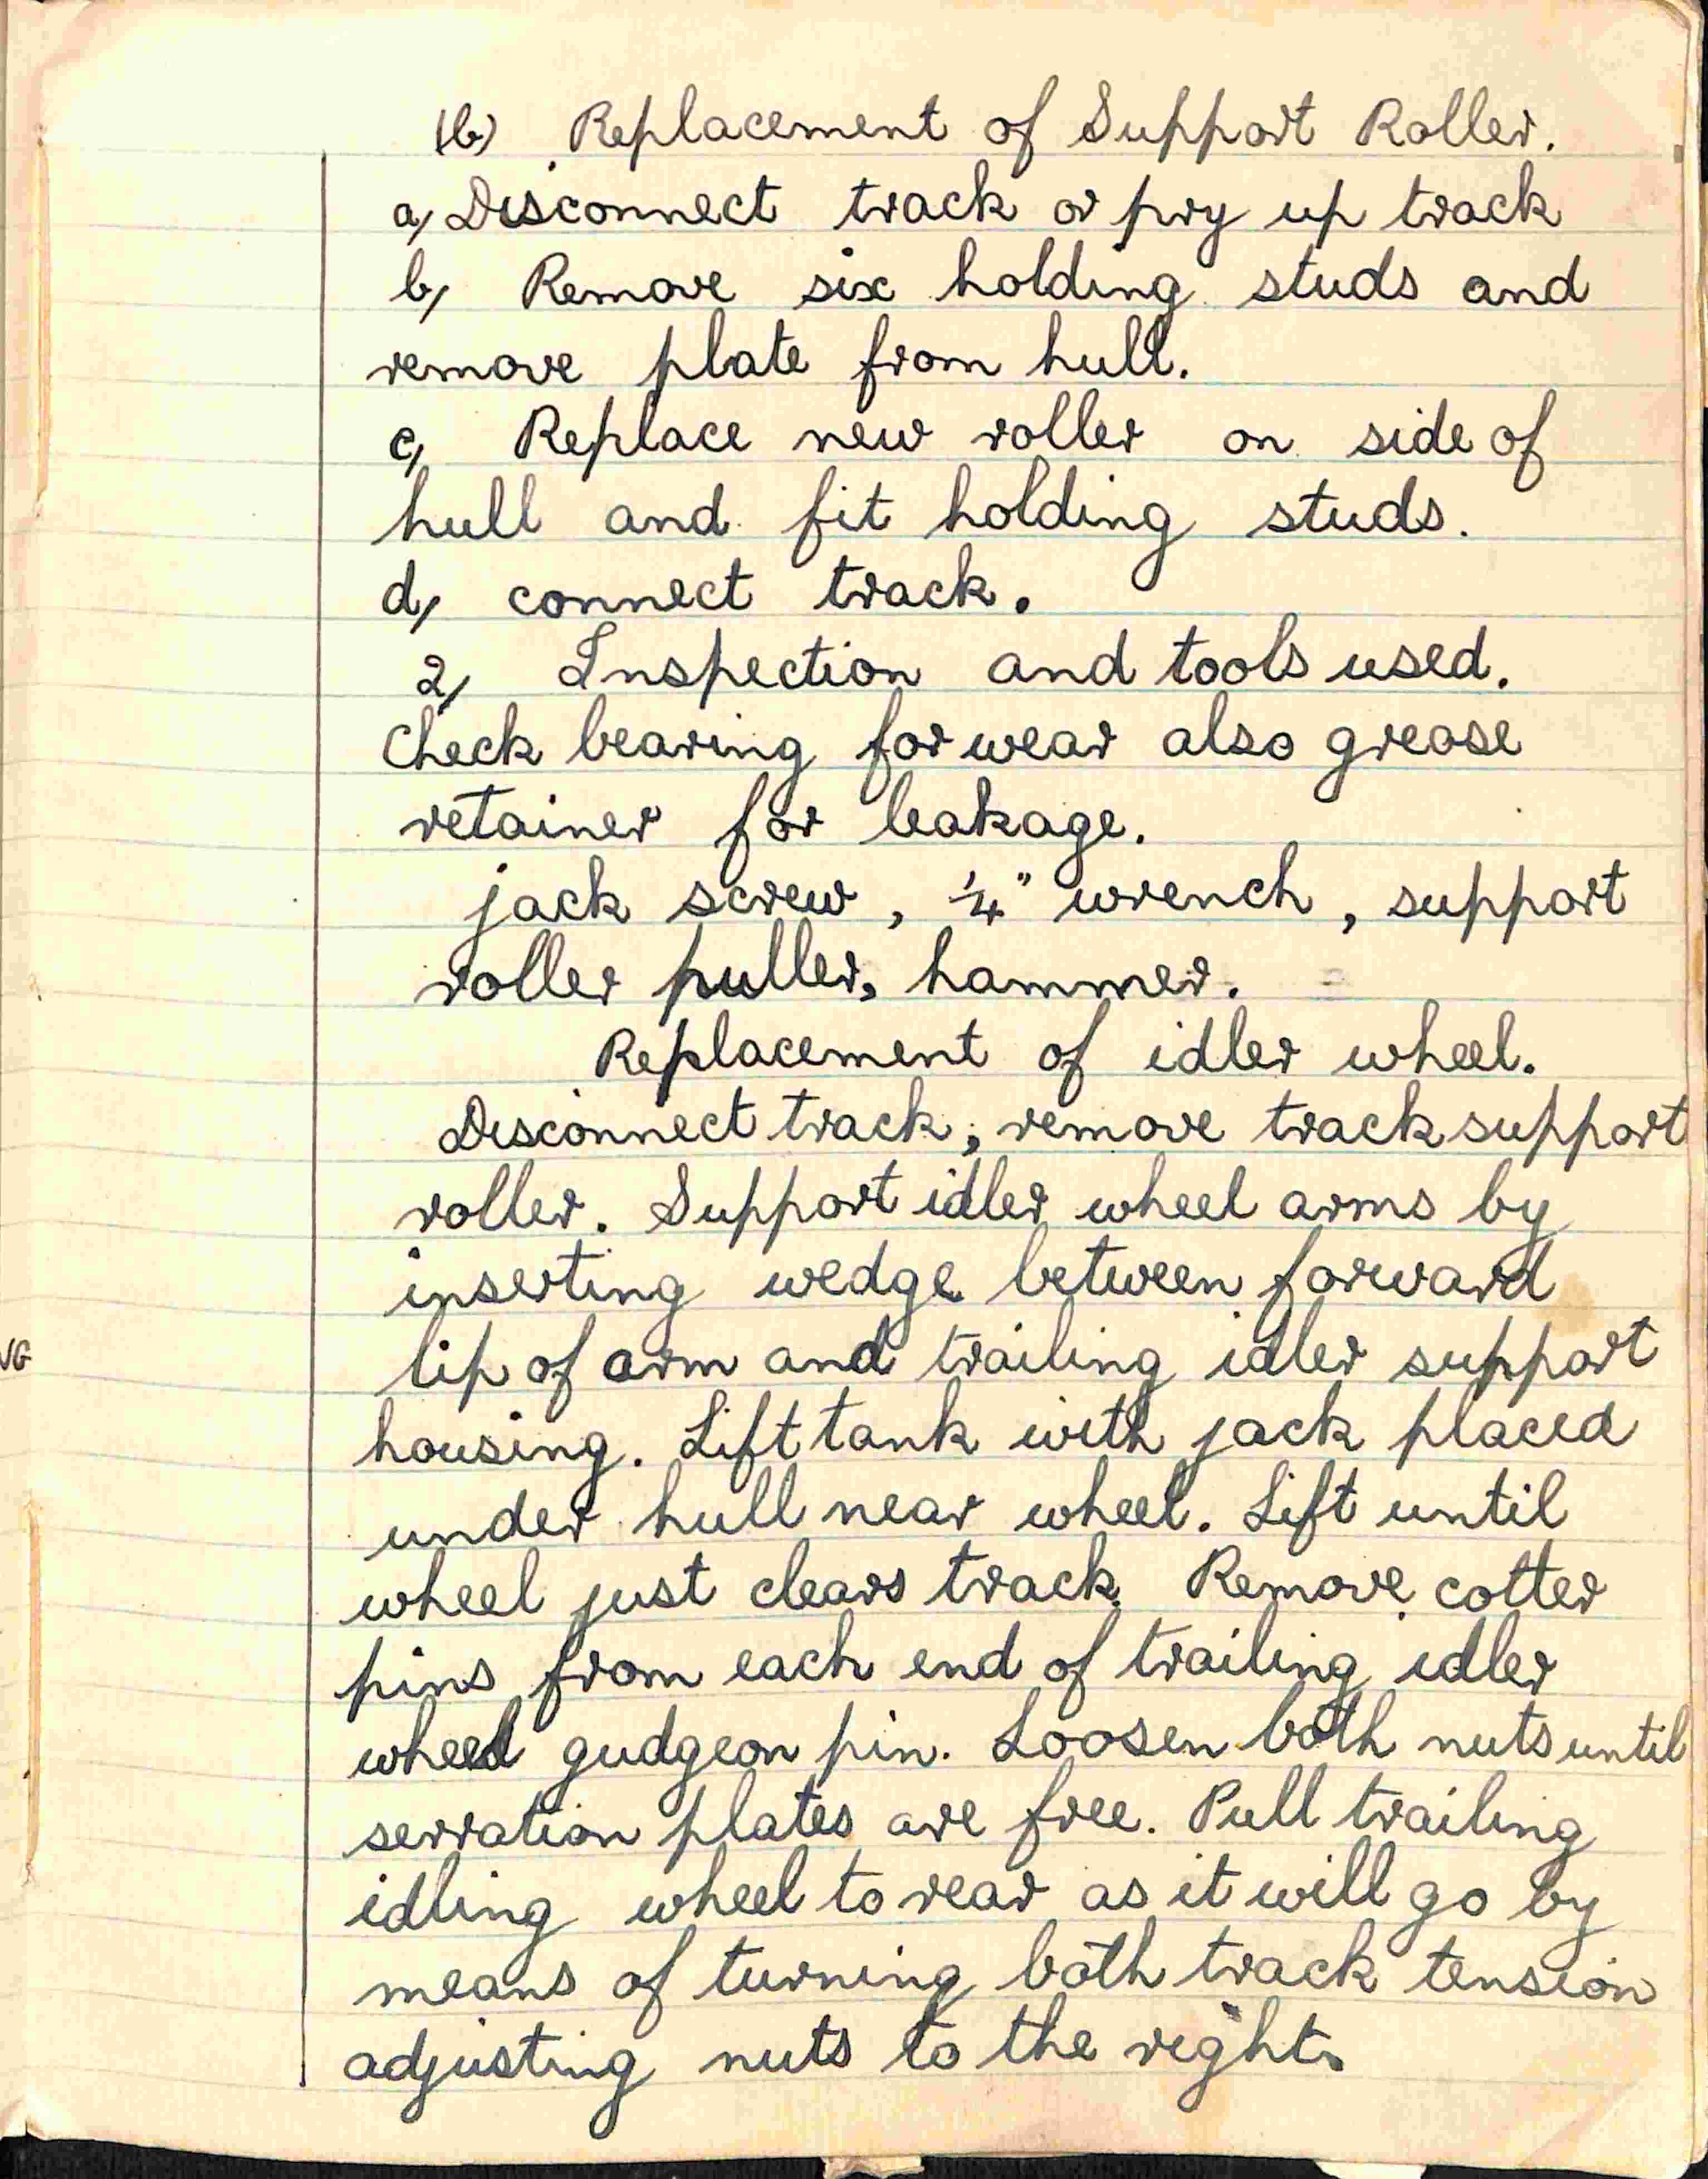 (b) Replacement of Support Roller.
a) Disconnect track or pry up track
b) Remove six holding studs and
remove plate from hull.
c) Replace new roller on side of
hull and fit holding studs.
d) connect track.
2) Inspection and tools used.
Check bearing for wear also grease
retainer for leakage.
jack screw, 1/4" wrench, support
roller puller, hammer.
Replacement of idler wheel.
Disconnect track, remove track support
roller. Support idler wheel arms by
inserting wedge between forward
lip of arm and trailing idler support
housing. Lift tank with jack placed
under hull near wheel. Lift until
wheel just clears track. Remove cotter
pins from each end of trailing idler
wheel gudgeon pin. Loosen both nuts until
serration plates are free. Pull trailing
idling wheel to rear as it will go by
means of turning both track tension
adjusting nuts to the right.